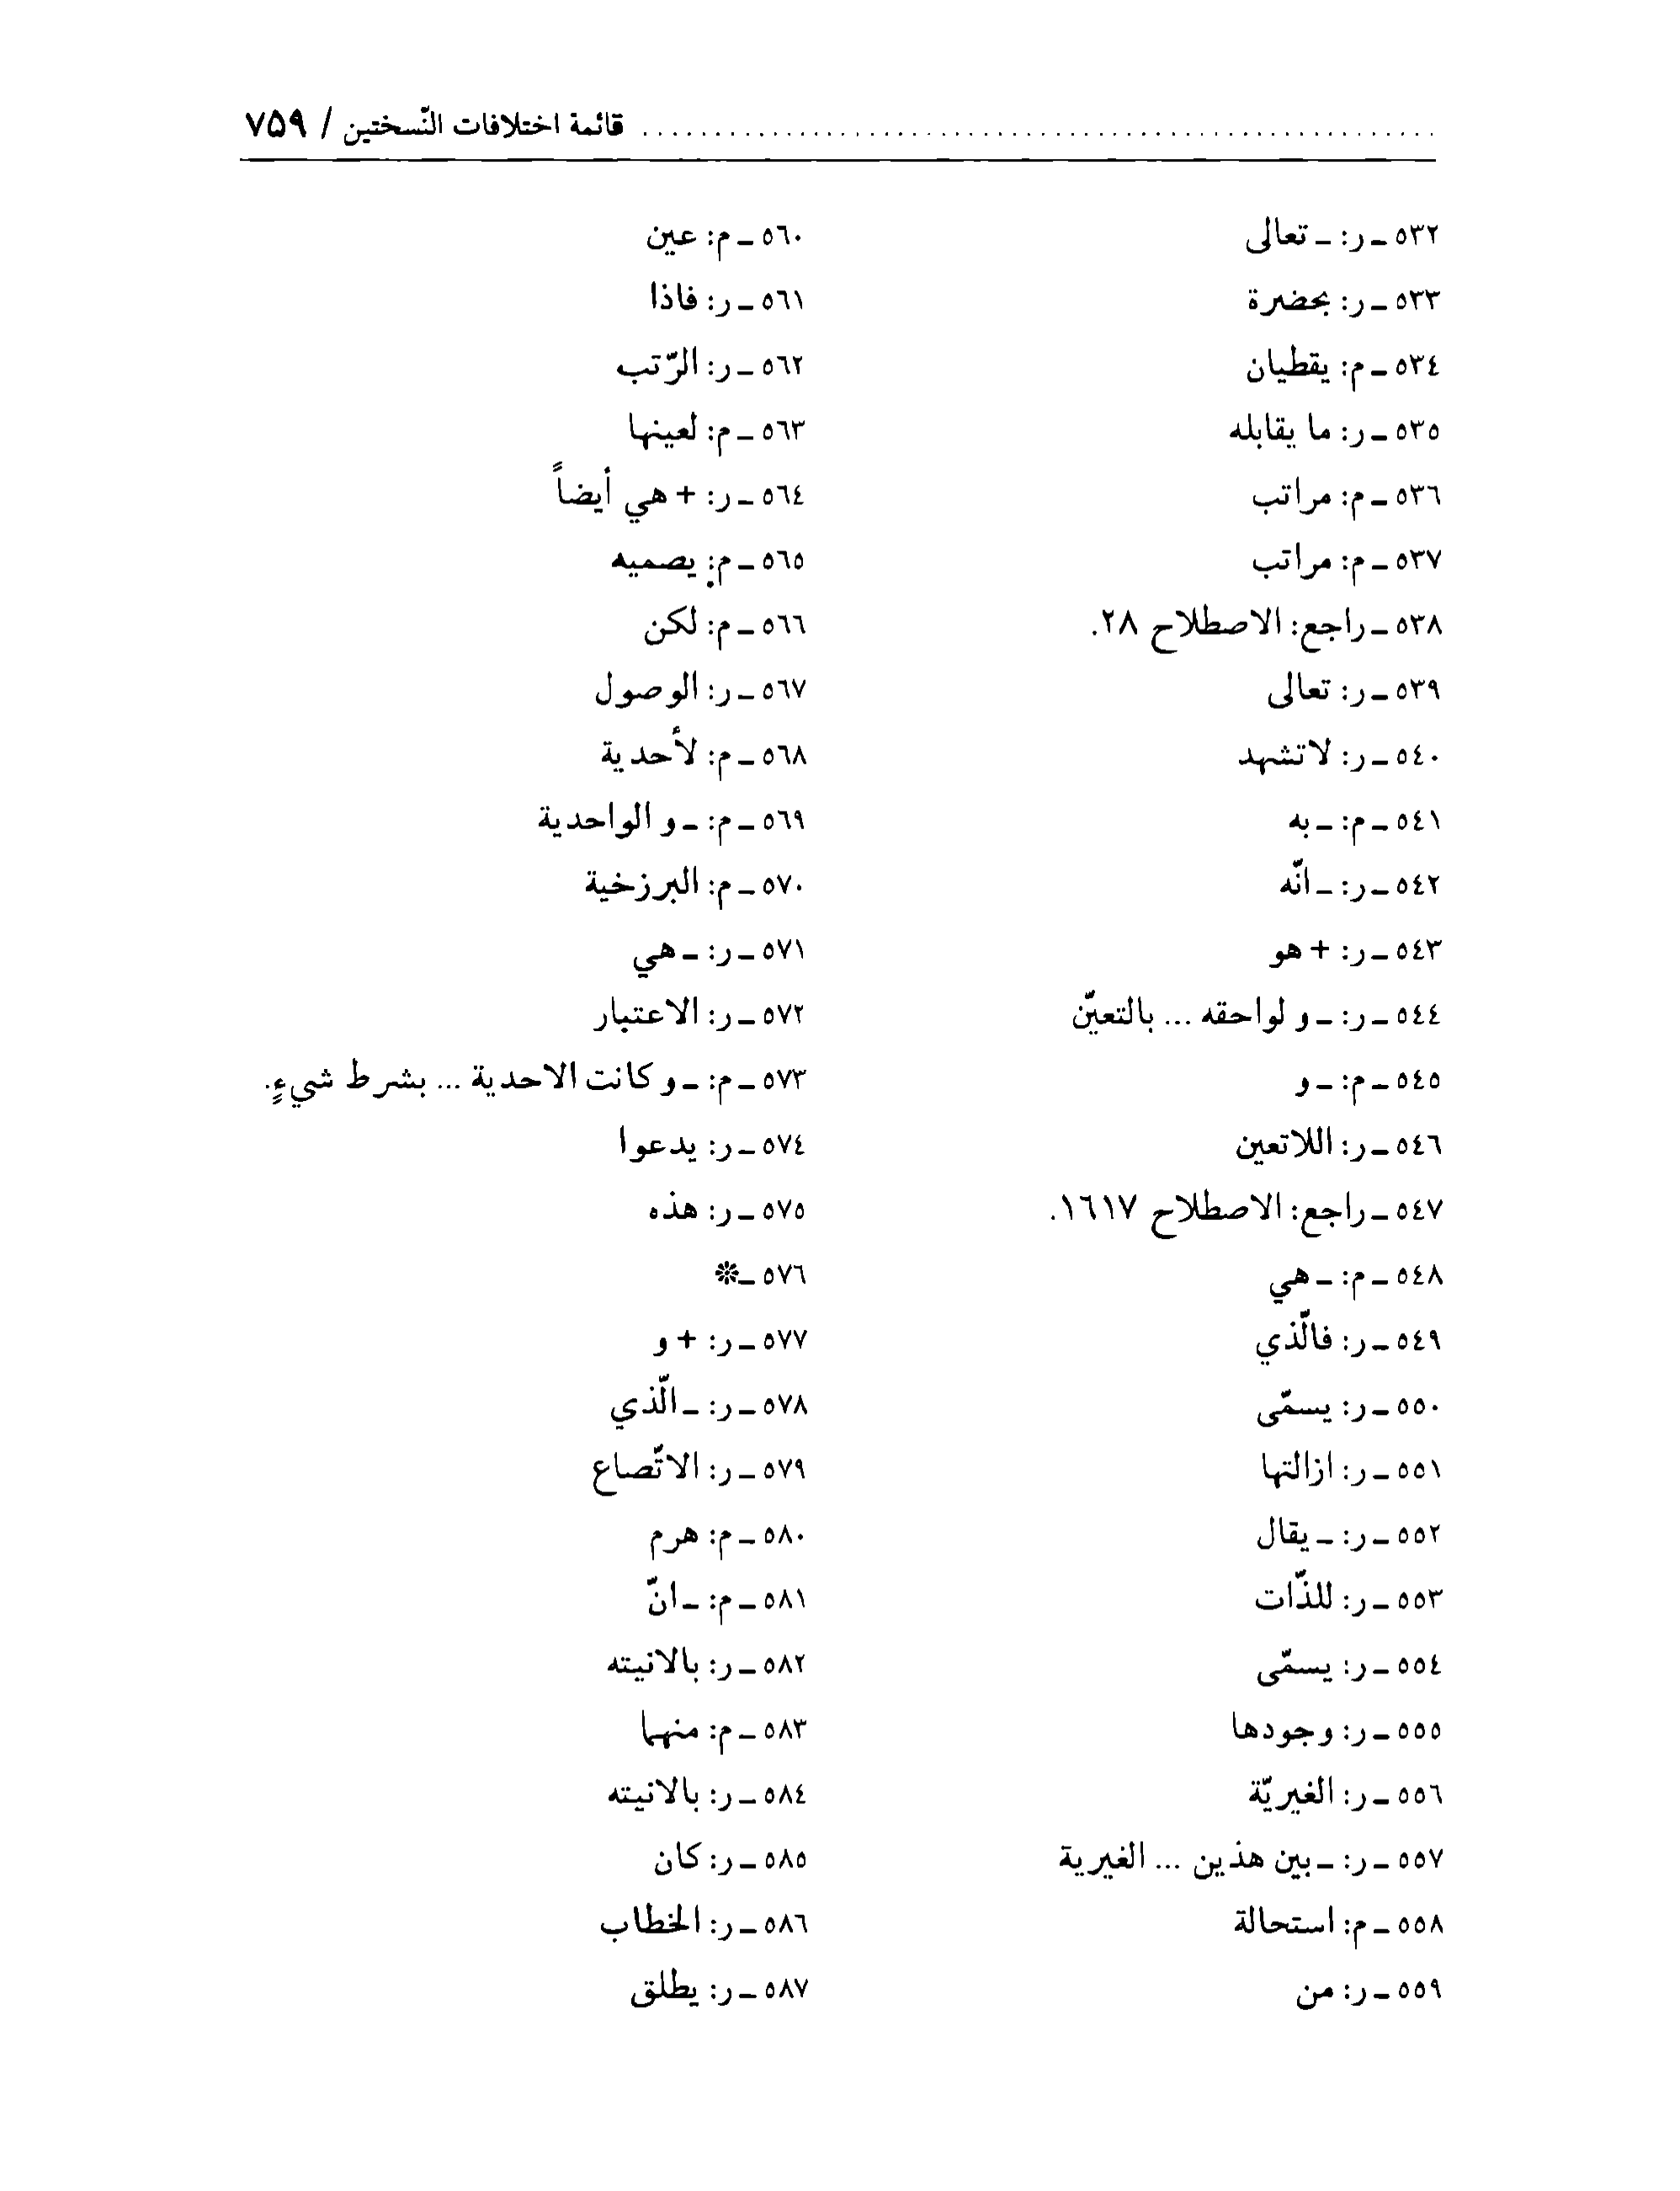 قائمة اختلافات النّسختين / ٧٥٩
٥٣٢ ـ ر: ـ تعالى
٥٣٣ ـ ر: بحضرة
٥٣٤ ـ م: يقطيان
٥٣٥ ـ ر: ما يقابله
٥٣٦ ـ م: مراتب
٥٣٧ ـ م: مراتب
٥٣٨ ـ راجع: الاصطلاح ٢٨.
٥٣٩ ـ ر: تعالى
٥٤٠ ـ ر: لاتشهد
٥٤١ ـ م: ـ به
٥٤٢ ـ ر: ـ انّه
٥٤٣ ـ ر: + هو
٥٤٤ ـ ر: ـ و لواحقه ... بالتعيّن
٥٤٥ ـ م: ـ و
٥٤٦ ـ ر: اللاتعين
٥٤٧ ـ راجع: الاصطلاح ١٦١٧.
٥٤٨ ـ م: ـ هي
٥٤٩ ـ ر: فالّذي
٥٥٠ ـ ر: يسمّى
٥٥١ ـ ر: ازالتها
٥٥٢ ـ ر: ـ يقال
٥٥٣ ـ ر: للذّات
٥٥٤ ـ ر: يسمّى
٥٥٥ ـ ر: وجودها
٥٥٦ ـ ر: الغيريّة
٥٥٧ ـ ر: ـ بين هذين ... الغيرية
٥٥٨ ـ م: استحالة
٥٥٩ ـ ر: من
٥٦٠ ـ م: عين
٥٦١ ـ ر: فاذا
٥٦٢ ـ ر: الرّتب
٥٦٣ ـ م: لعينها
٥٦٤ ـ ر: + هي أيضاً
٥٦٥ ـ م: يصميه
٥٦٦ ـ م: لكن
٥٦٧ ـ ر: الوصول
٥٦٨ ـ م: لأحدية
٥٦٩ ـ م: ـ و الواحدية
٥٧٠ ـ م: البرزخية
٥٧١ ـ ر: ـ هي
٥٧٢ ـ ر: الاعتبار
٥٧٣ ـ م: ـ و كانت الاحدية ... بشرط شيءٍ.
٥٧٤ ـ ر: يدعوا
٥٧٥ ـ ر: هذه
٥٧٦ ـ❊
٥٧٧ ـ ر: + و
٥٧٨ ـ ر: ـ الّذي
٥٧٩ ـ ر: الاتّصاع
٥٨٠ ـ م: هرم
٥٨١ ـ م: ـ انّ
٥٨٢ ـ ر: بالانيته
٥٨٣ ـ م: منهما
٥٨٤ ـ ر: بالانيته
٥٨٥ ـ ر: كان
٥٨٦ ـ ر: الخطاب
٥٨٧ ـ ر: يطلق